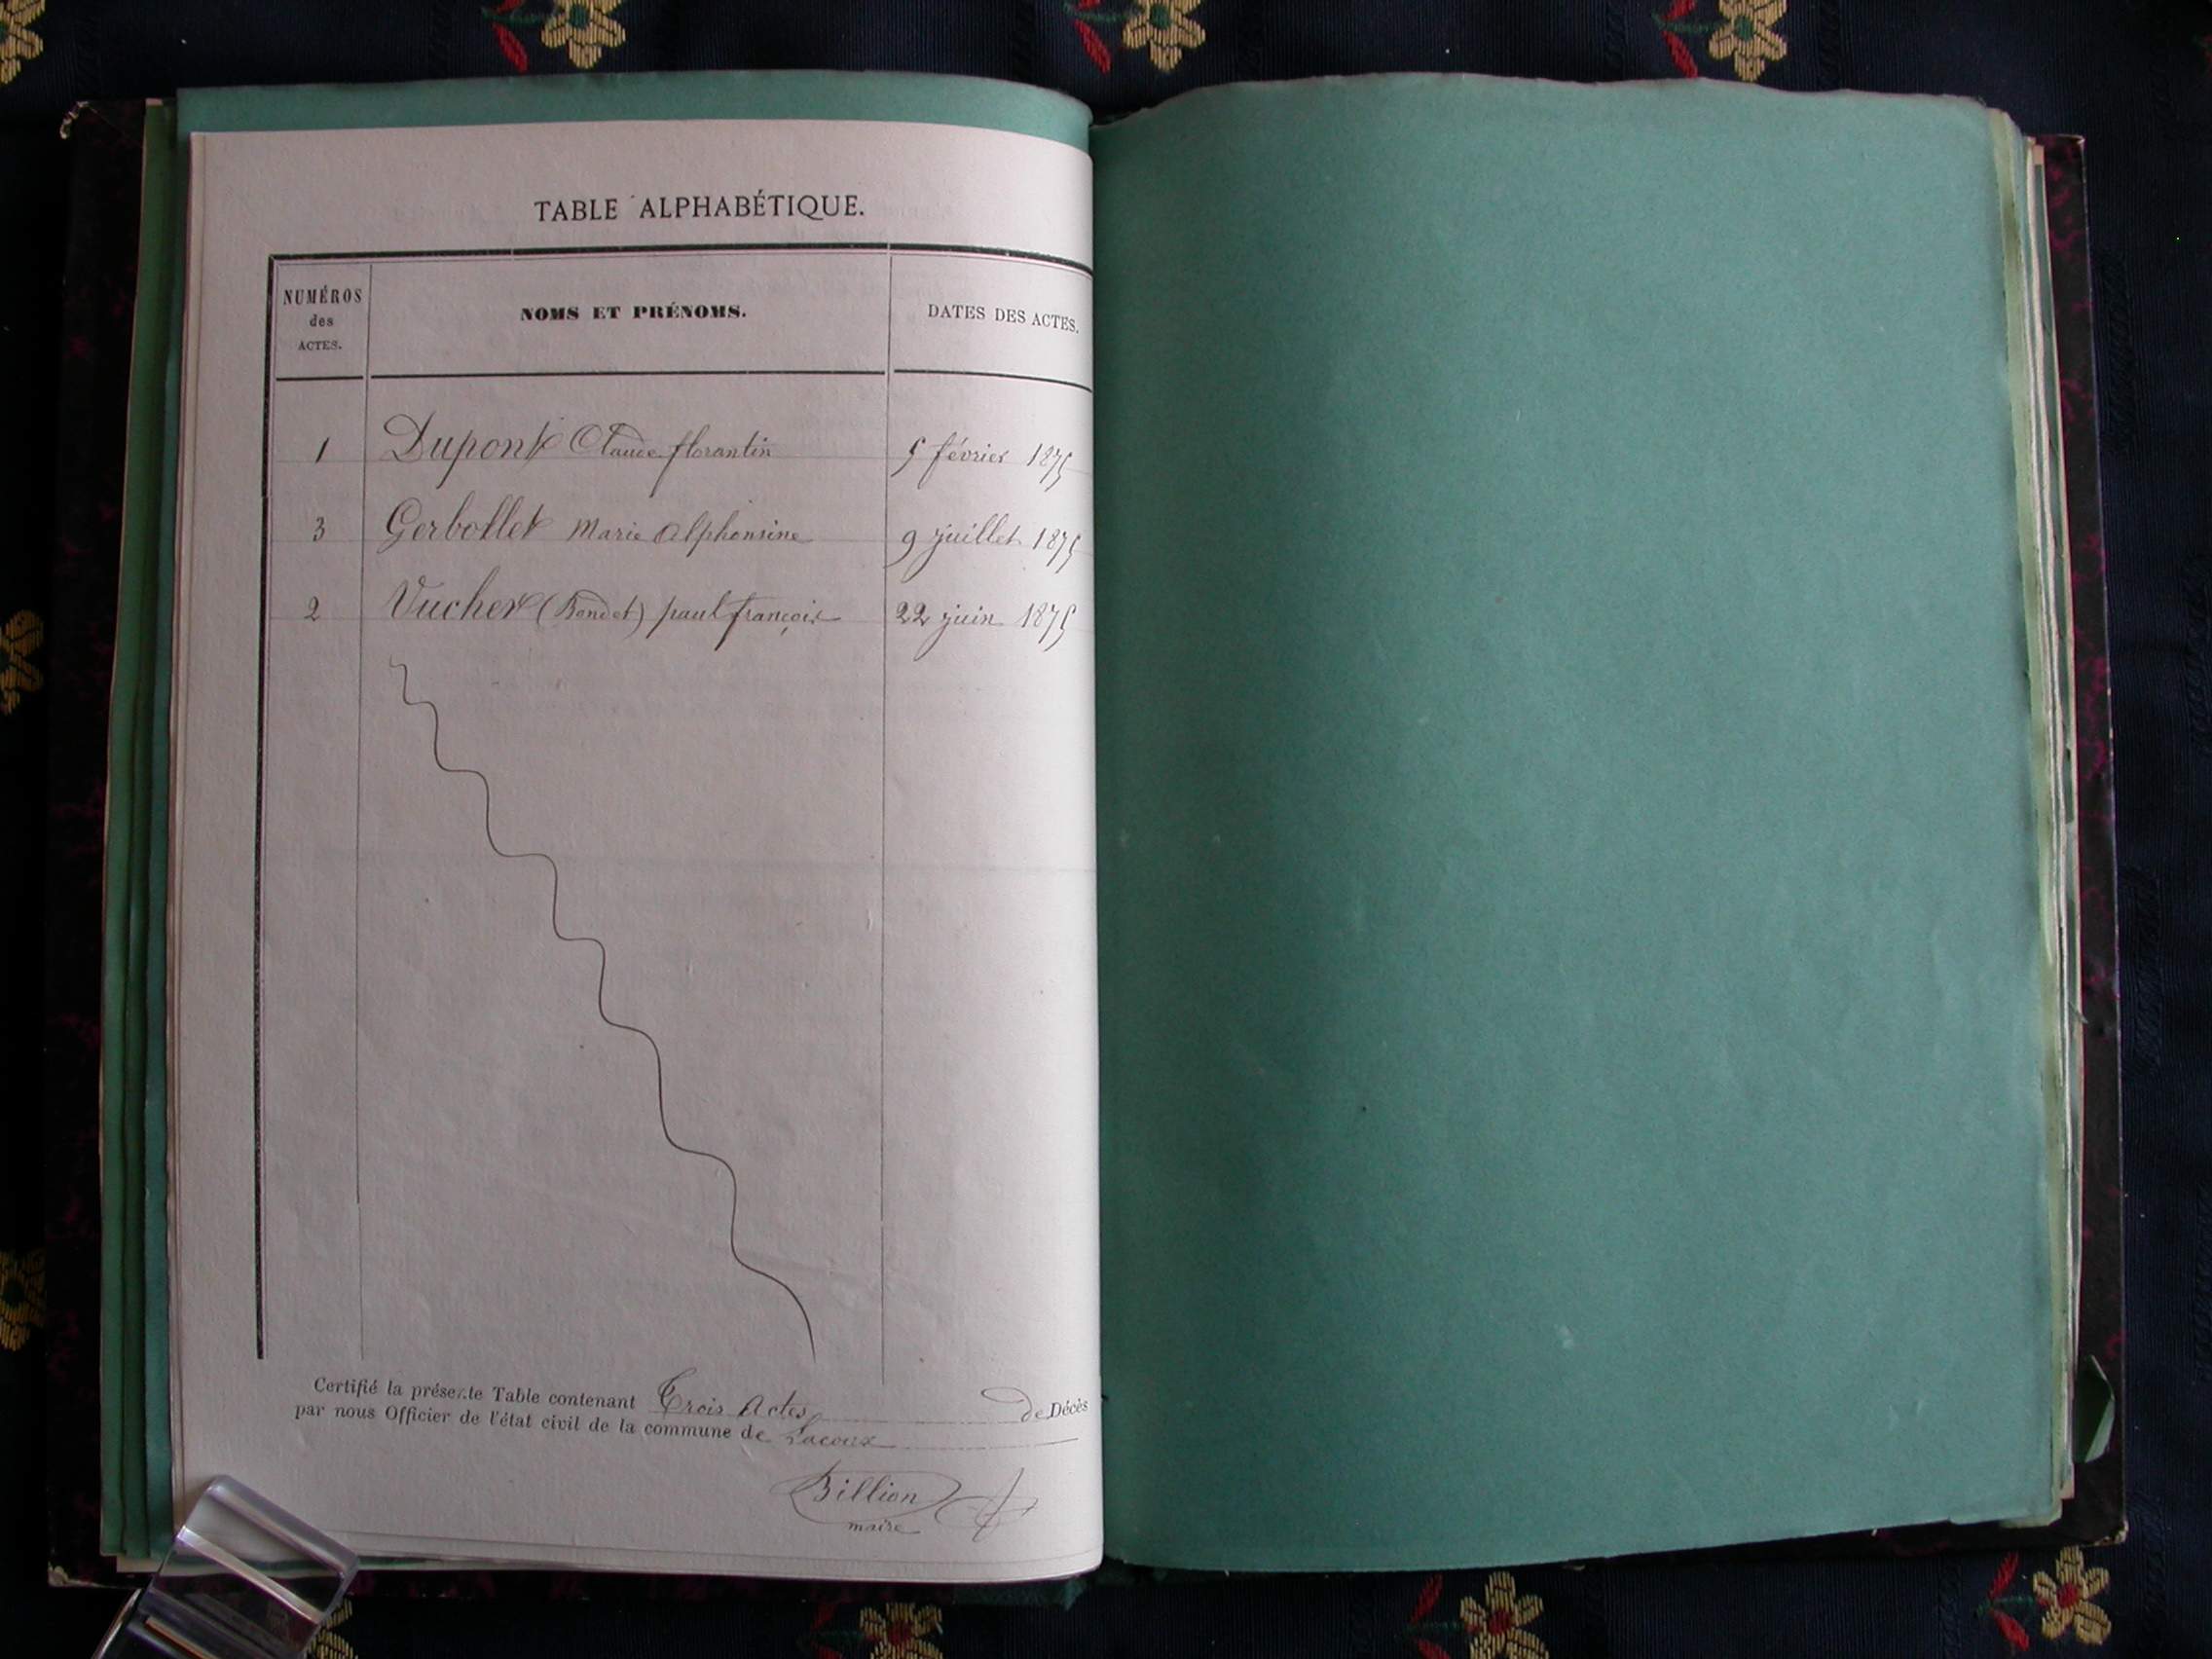 TABLE ALPHABÉTIQUE.
NUMÉROS des ACTES. NOMS ET PRÉNOMS. DATES DES ACTES.
1 Dupont Claude florantin 5 février 1875
3 Gerbollet Marie Alphonsine 9 juillet 1875
2 Vucher (Bondet) paul françois 22 juin 1875
Certifié la présente Table contenant Trois Actes de Décès
par nous Officier de l'état civil de la commune de Lacoux
Billion
maire